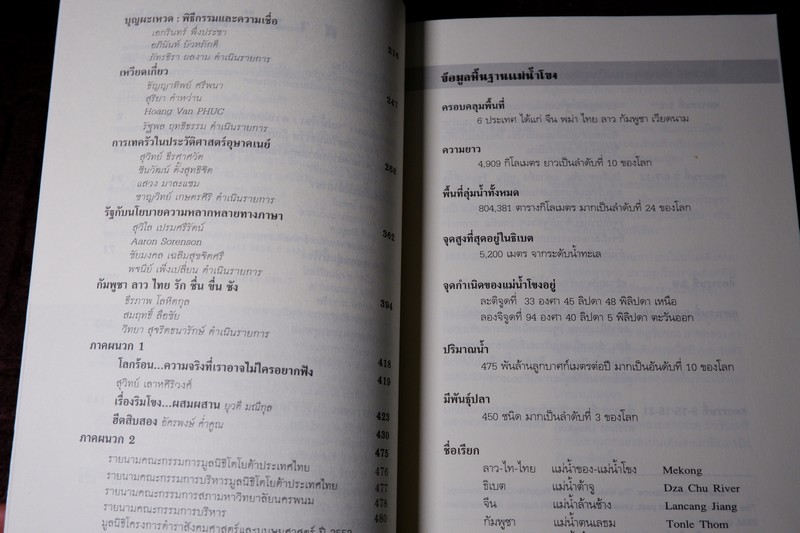 บุญผะเหวด : พิธีกรรมและความเชื่อ
เอกรินทร์ พึ่งประชา
อภินันท์ บัวหภักดี
ภัทรชิรา ผลงาม ดำเนินรายการ
216
เหวียดเกี่ยว
ธัญญาทิพย์ ศรีพนา
สุริยา คำหว่าน
Hoang Van PHUC
รัฐพล ฤทธิธรรม ดำเนินรายการ
247
การเทครัวในประวัติศาสตร์อุษาคเนย์
สุวิทย์ ธีรศาศวัต
ชินวัฒน์ ตั้งสุทธิจิต
แสวง มาละแซม
ชาญวิทย์ เกษตรศิริ ดำเนินรายการ
268
รัฐกับนโยบายความหลากหลายทางภาษา
สุวิไล เปรมศรีรัตน์
Aaron Sorenson
ชัยมงคล เฉลิมสุขจิตศรี
พจนีย์ เพ็งเปลี่ยน ดำเนินรายการ
362
กัมพูชา ลาว ไทย รัก ชื่น ขื่น ชัง
ธีรภาพ โลหิตกุล
สมฤทธิ์ ลือชัย
วิทยา สุจริตธนารักษ์ ดำเนินรายการ
394
ภาคผนวก 1
โลกร้อน...ความจริงที่เราอาจไม่ใครอยากฟัง 418
สุวิทย์ เลาหศิริวงศ์ 419
เรื่องริมโขง...ผสมผสาน ยุวดี มณีกุล 423
ฮีตสิบสอง อัครพงษ์ ค่ำคูณ 430
ภาคผนวก 2 475
รายนามคณะกรรมการมูลนิธิโตโยต้าประเทศไทย 476
รายนามคณะกรรมการบริหารมูลนิธิโตโยต้าประเทศไทย 477
รายนามคณะกรรมการสภามหาวิทยาลัยนครพนม 478
รายนามคณะกรรมการบริหาร
มูลนิธิโครงการตำราสังคมศาสตร์และมนุษยศาสตร์ ปี 2552 480
ข้อมูลพื้นฐานแม่น้ำโขง
ครอบคลุมพื้นที่
6 ประเทศ ได้แก่ จีน พม่า ไทย ลาว กัมพูชา เวียดนาม
ความยาว
4,909 กิโลเมตร ยาวเป็นลำดับที่ 10 ของโลก
พื้นที่ลุ่มน้ำทั้งหมด
804,381 ตารางกิโลเมตร มากเป็นลำดับที่ 24 ของโลก
จุดสูงที่สุดอยู่ในธิเบต
5,200 เมตร จากระดับน้ำทะเล
จุดกำเนิดของแม่น้ำโขงอยู่
ละติจูดที่ 33 องศา 45 ลิปดา 48 พิลิปดา เหนือ
ลองจิจูดที่ 94 องศา 40 ลิปดา 5 พิลิปดา ตะวันออก
ปริมาณน้ำ
475 พันล้านลูกบาศก์เมตรต่อปี มากเป็นอันดับที่ 10 ของโลก
มีพันธุ์ปลา
450 ชนิด มากเป็นลำดับที่ 3 ของโลก
ชื่อเรียก
ลาว-ไท-ไทย แม่น้ำของ-แม่น้ำโขง Mekong
ธิเบต แม่น้ำต้าจู Dza Chu River
จีน แม่น้ำล้านช้าง Lancang Jiang
กัมพูชา แม่น้ำตนเลธม Tonle Thom